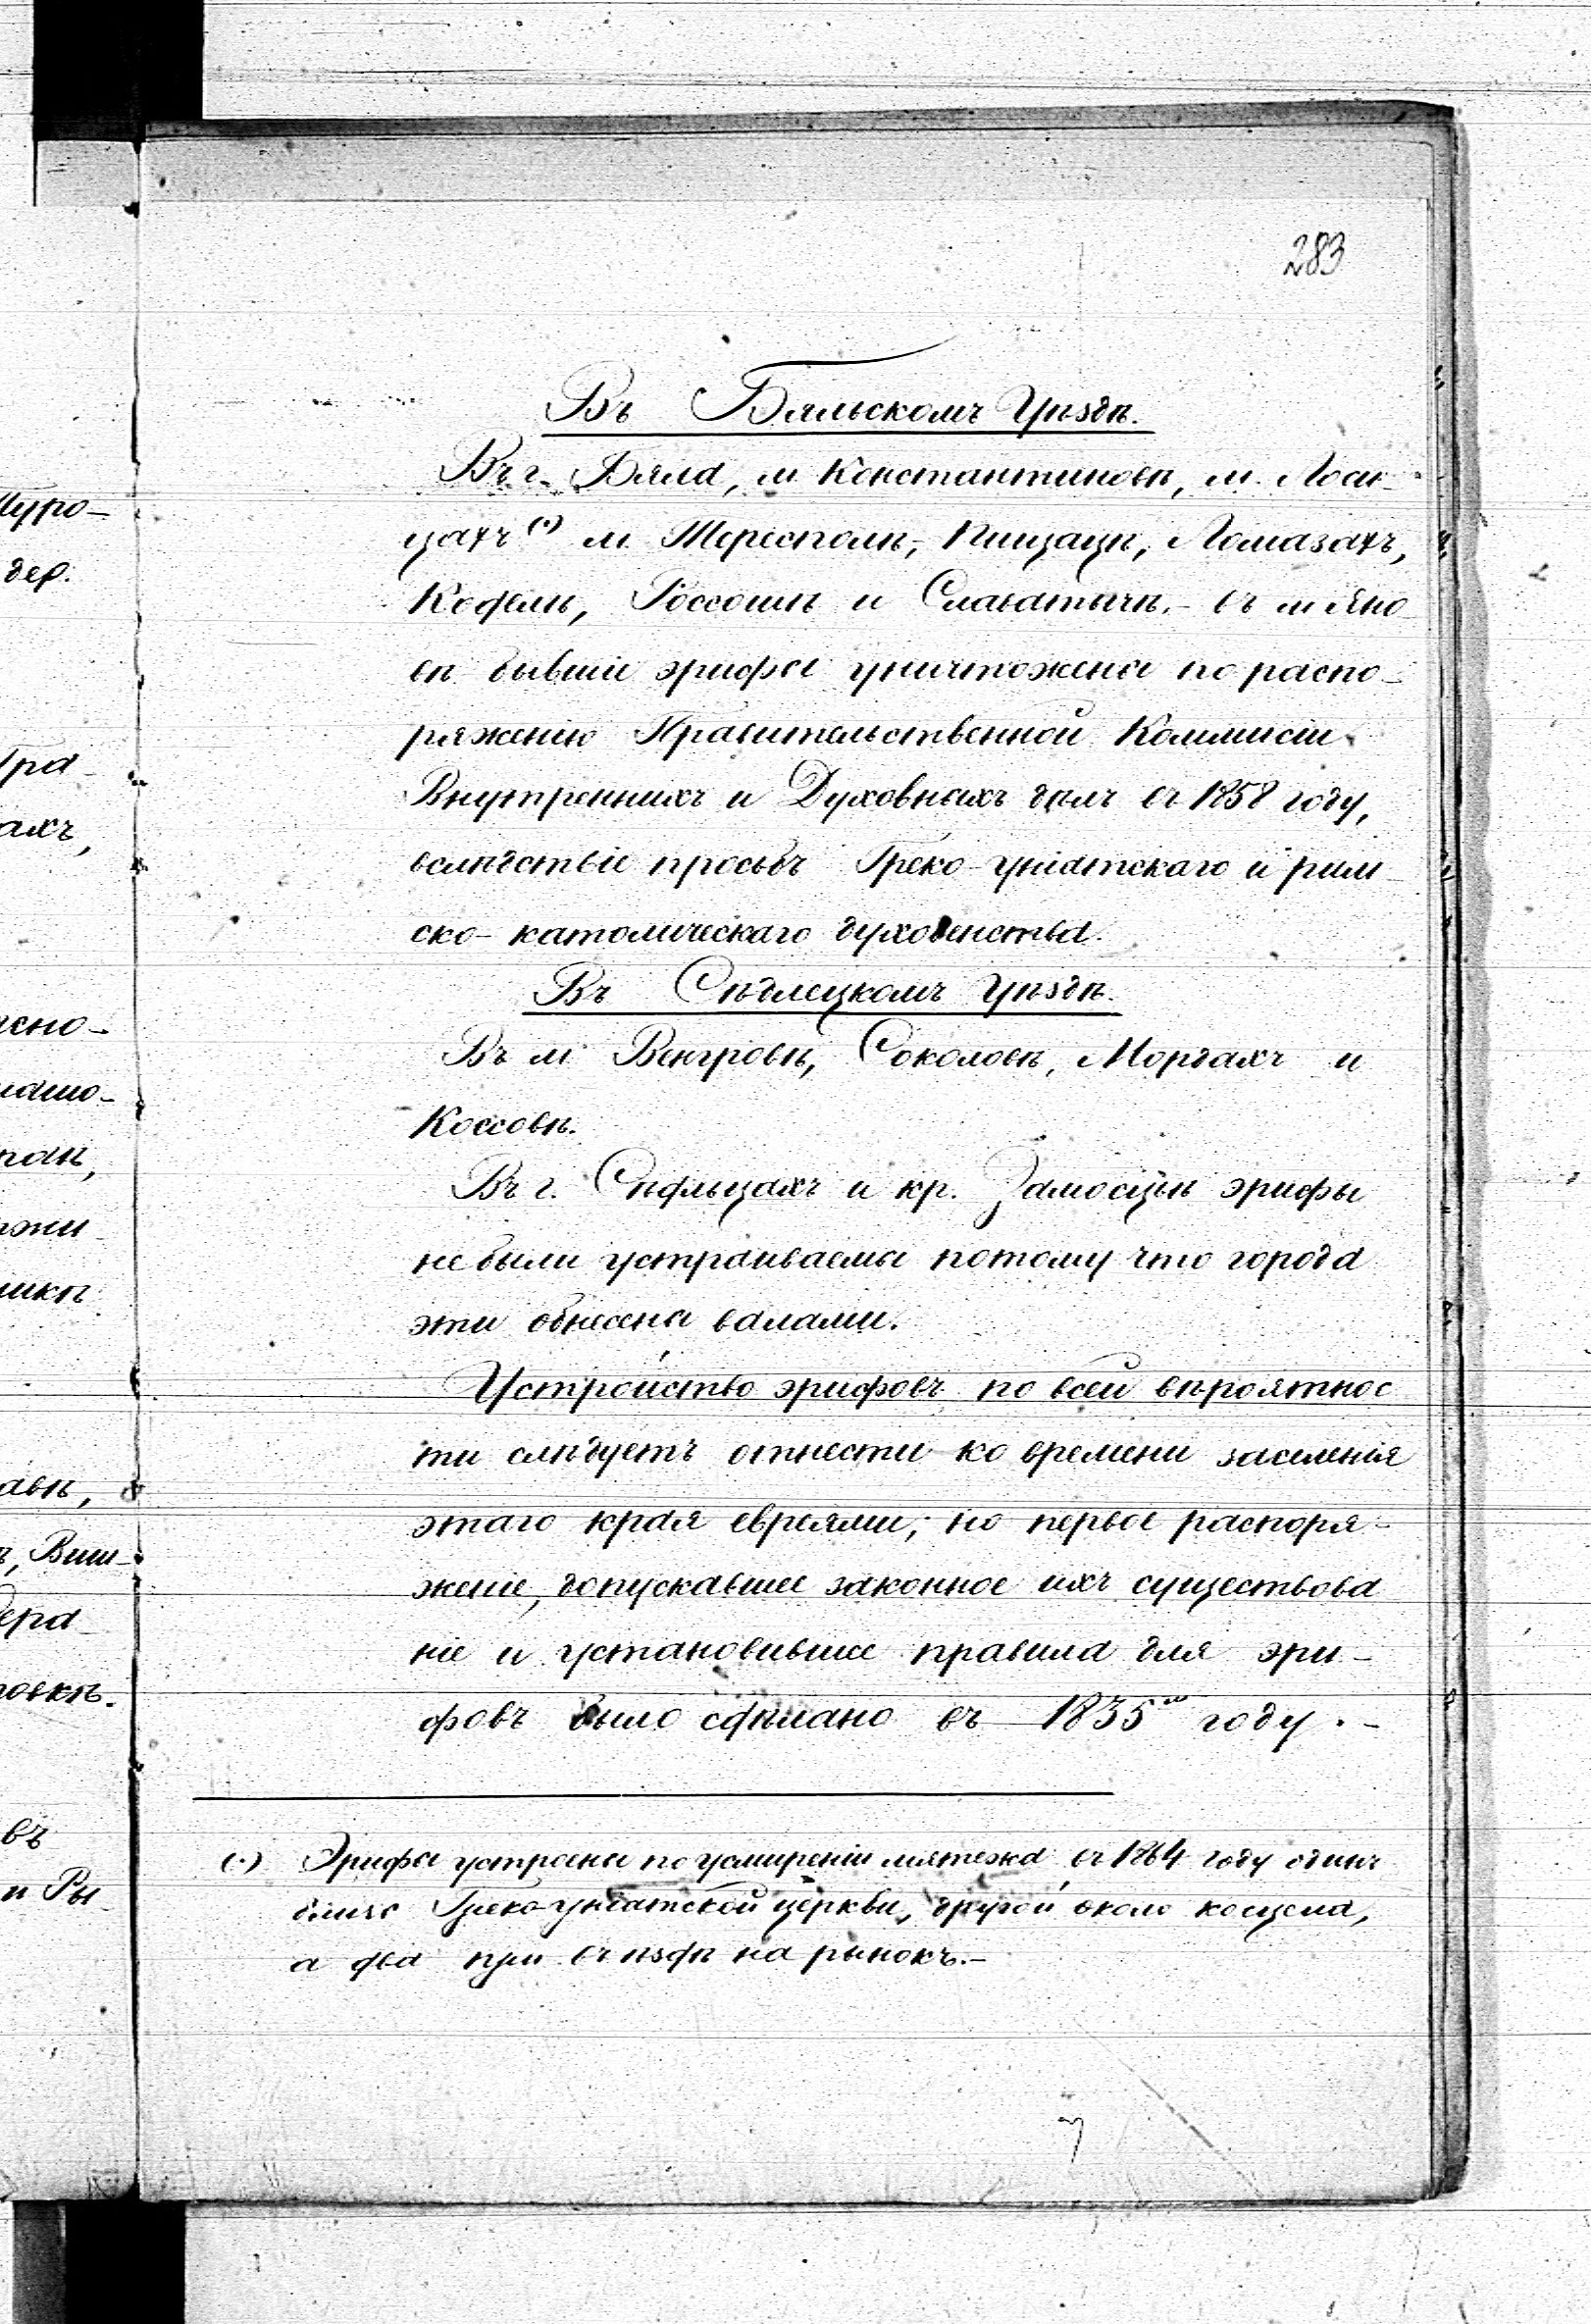 283
Въ Бяльскомъ Уѣздѣ.
Въ г. Бяла, м. Константиновѣ, м. Лоси-
цахъ (·) м. Тересполѣ, Пищацѣ, Ломазахъ,
Коднѣ, Россошѣ и Славатычѣ.- въ м Яно
вѣ бывшіе эрифы уничтожены по распо-
ряженію Правительственной Коммисіи
Внутреннихъ и Духовныхъ дѣлъ въ 1858 году,
вслѣдствіе просьбъ Греко-уніатскаго и рим-
ско-католическаго духовенства.
Въ Сѣдлецкомъ Уѣздѣ.
Въ м Венгровѣ, Соколовѣ, Мордахъ и
Коссовѣ.
Въ г. Сѣдльцахъ и кр. Замосцьѣ эрифы
не были устраиваемы потому что города
эти обнесены валами.
Устройство эрифовъ по всей вѣроятнос
ти слѣдуетъ отнести ко времени заселенія
этаго края евреями; но первое распоря-
женіе, допускавшее законное ихъ существова
ніе и установившее правила для эри-
фовъ было сдѣлано въ 1835 году.-
(·) Эрифы устроены по усмиреніи мятежа въ 1864 году одинъ
близь Греко-уніатской церкви, другой около косцела,
а два при въѣздѣ на рынокъ.-
Туро-
дер.
Гра-
ахъ,
сно-
ншо-
панѣ,
жи
никѣ
авѣ,
ъ, Виш-
ера-
новкѣ.
въ
и Ры-